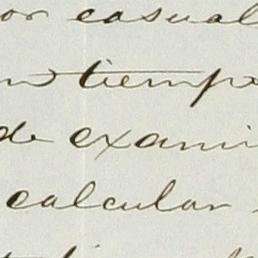 or casual
tiempo
de exami
calcular